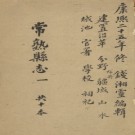 康熙二十五年修 錢湘靈編輯
建置沿革 分野 疆域 山水
城池 官署 學校 祠祀
常熟縣志一 共十本